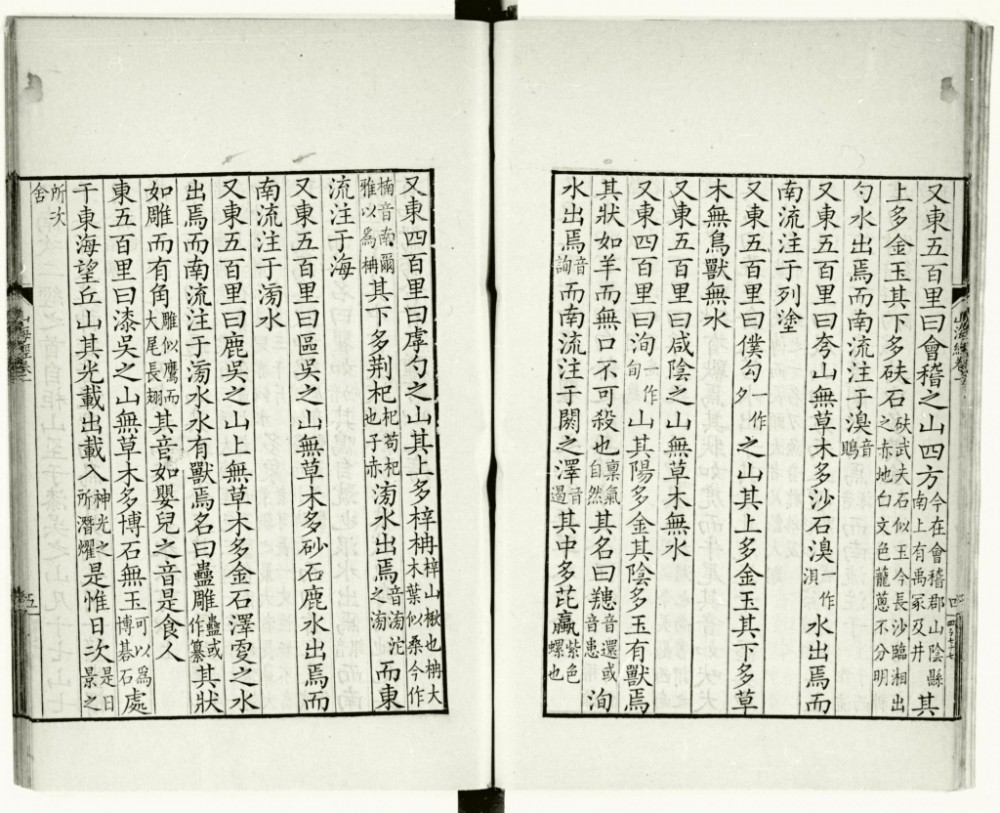 又東五百里曰會稽之山四方今在會稽郡山陰縣南上有禹冢及井其
上多金玉其下多砆石砆武夫石似玉今長沙臨湘出之赤地白文色蘢蔥不分明
勺水出焉而南流注于湨音鶪
又東五百里曰夸山無草木多沙石湨一作浿水出焉而
南流注于列塗
又東五百里曰僕勾一作夕之山其上多金玉其下多草
木無鳥獸無水
又東五百里曰咸陰之山無草木無水
又東四百里曰洵一作旬山其陽多金其陰多玉有獸焉
其狀如羊而無口不可殺也稟氣自然其名曰䍺音還或音患洵
水出焉音詢而南流注于閼之澤音遏其中多茈蠃紫色螺也
又東四百里曰虖勺之山其上多梓柟梓山楸也柟大木葉似桑今作
楠音南爾雅以爲柟其下多荆杞杞苟杞也子赤滂水出焉音滂沱之滂而東
流注于海
又東五百里曰區吳之山無草木多砂石鹿水出焉而
南流注于滂水
又東五百里曰鹿吳之山上無草木多金石澤更之水
出焉而南流注于滂水水有獸焉名曰蠱雕蠱或作纂其狀
如雕而有角雕似鷹而大尾長翅其音如嬰兒之音是食人
東五百里曰漆吳之山無草木多博石無玉可以爲博碁石處
于東海望丘山其光載出載入神光之所潛燿是惟日次是日景之
所次舍
山海經卷一
五